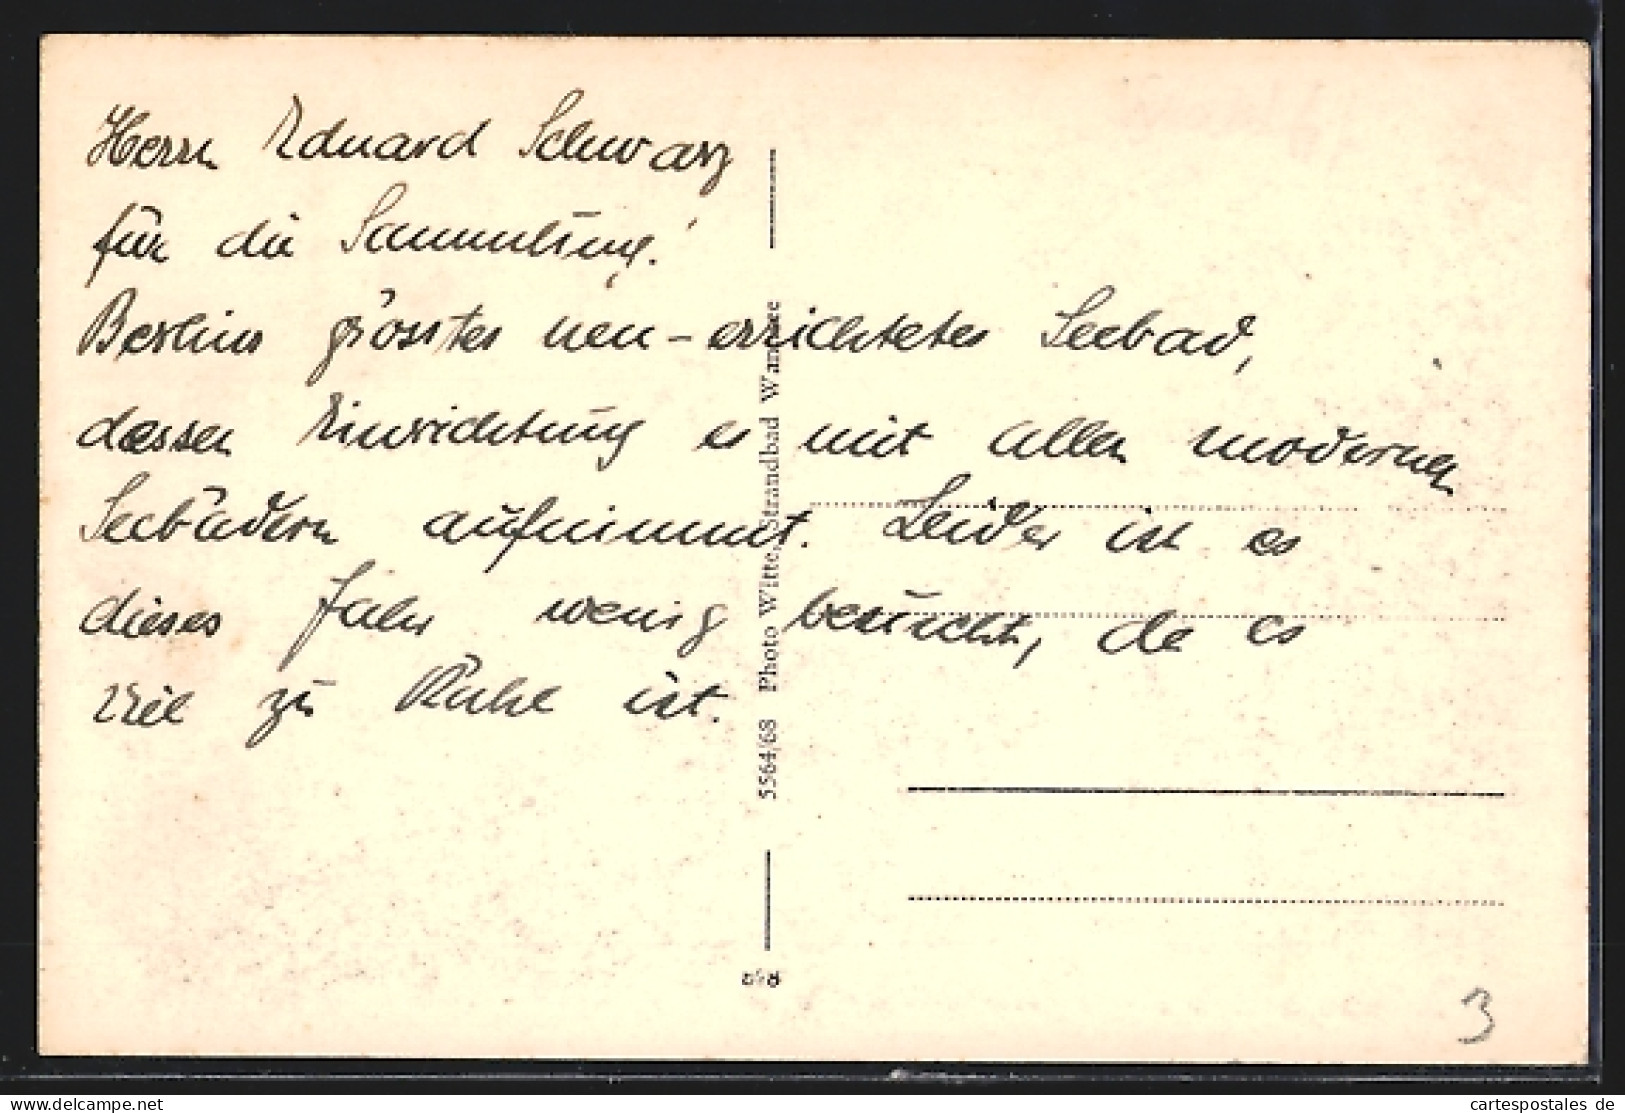 Herrn Eduard Schwarz
für die Sammlung!
Berlins grösstes neu-errichtetes Seebad,
dessen Einrichtung es mit allen modernen
Seebädern aufnimmt. Leider ist es
dieses Jahr wenig besucht, da es
viel zu kühl ist.
5564/68 Photo Witte, Strandbad Wannsee
3
www.delcampe.net
cartespostales de